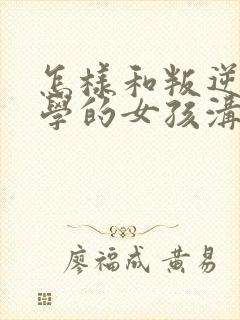 怎樣和叛逆
學的女孩溝
廖福成 黄易